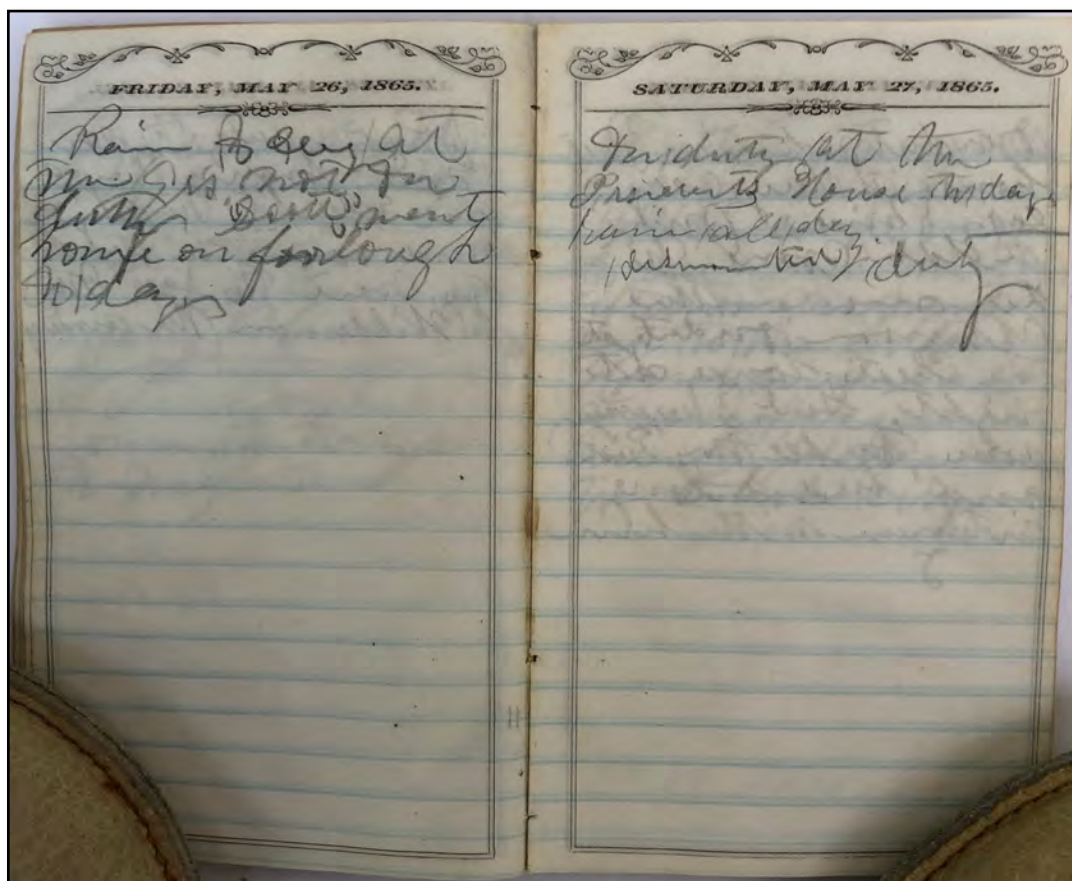 FRIDAY, MAY 26, 1865.
Rain to day at
not
duty "Scott" went
home on foorlough
to day
SATURDAY, MAY 27, 1865.
duty at the
Presients House to day
rain all day
duty